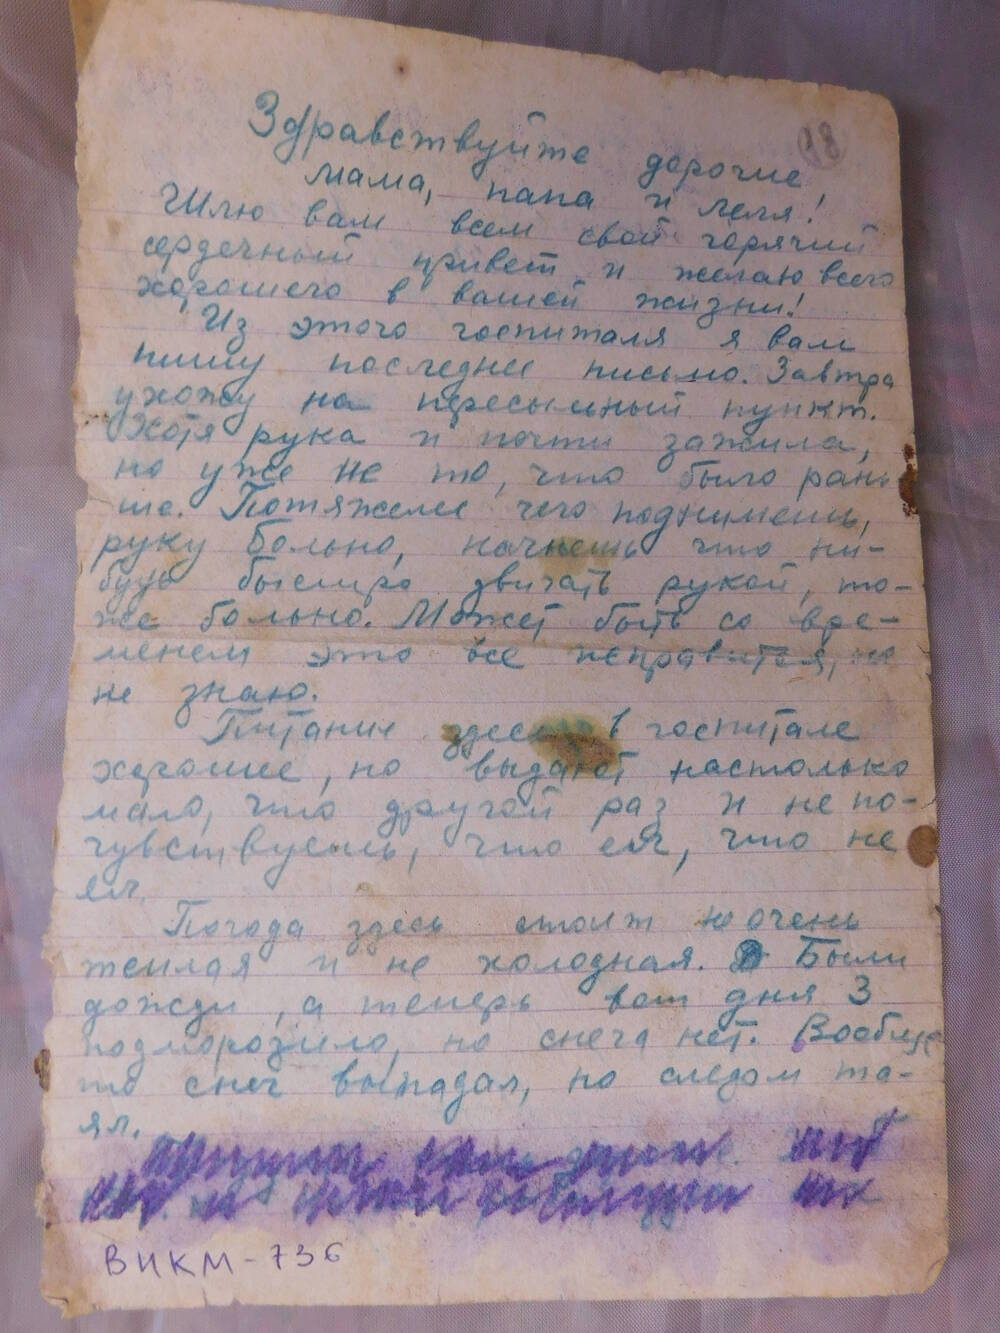 18
Здравствуйте дорогие
мама, папа и Леля!
Шлю вам всем свой горячий
сердечный привет и желаю всего
хорошего в вашей жизни!
Из этого госпиталя я вам
пишу последнее письмо. Завтра
ухожу на пересыльный пункт.
Хотя рука и почти зажила,
но уже не то, что было рань-
ше. Потяжелее чего поднимешь,
руку больно, начнешь что ни-
будь быстро двигать рукой, то-
же больно. Может быть со вре-
менем это все исправится, но
не знаю.
Питание здесь в госпитале
хорошее, но выдают настолько
мало, что другой раз и не по-
чувствуешь, что ел, что не
ел.
Погода здесь стоит не очень
теплая и не холодная. Были
дожди, а теперь вот дня 3
подморозило, но снега нет. Вообще
то снег выпадал, но следом та-
ял.
ВИКМ-736